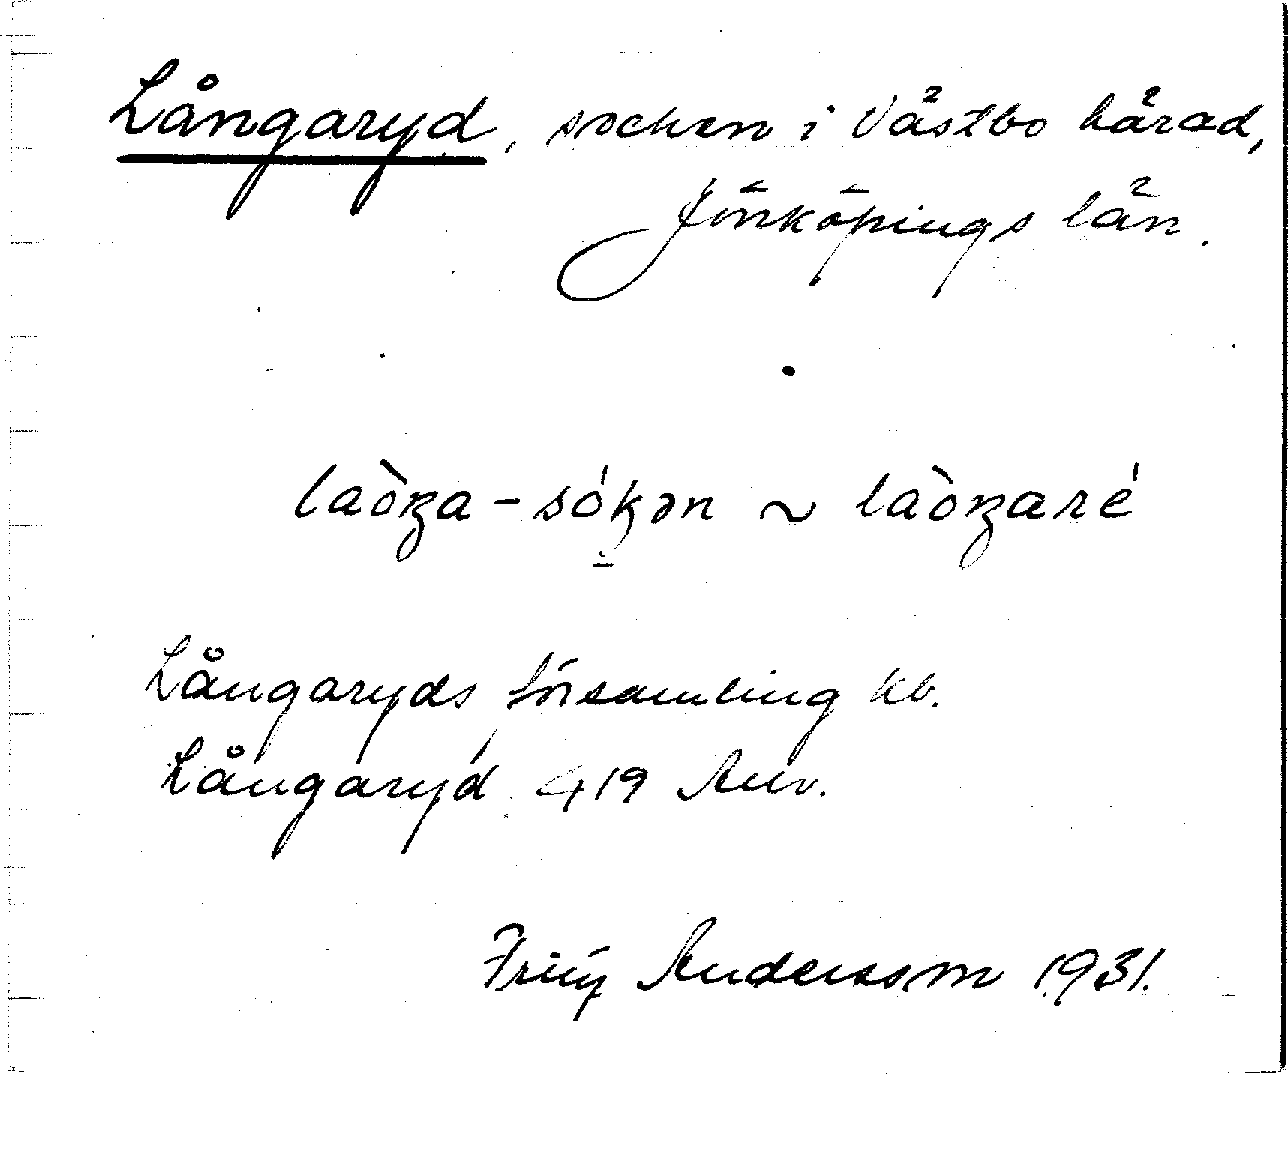 Långaryd, socken i Västbo härad,
Jönköpings län.
laòŋa-sókən ~ laòŋaré
Långaryds församling kb.
Långaryd 419 Anv.
Andersson 1931.